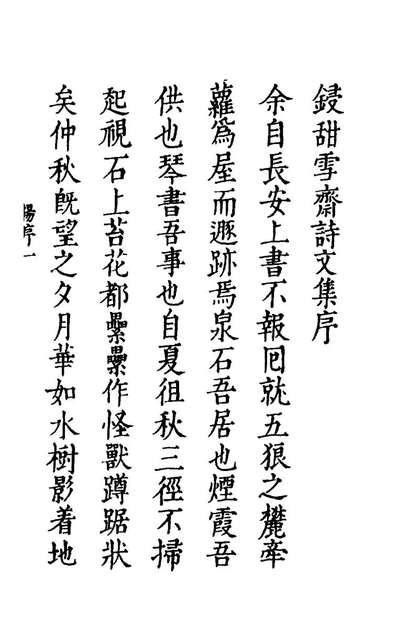 鋟甜雪齋詩文集序
余自長安上書不報囘就五狼之麓牽
蘿爲屋而遯跡焉泉石吾居也煙霞吾
供也琴書吾事也自夏徂秋三徑不掃
起視石上苔花都纍纍作怪獸蹲踞狀
矣仲秋旣望之夕月華如水樹影着地
序一